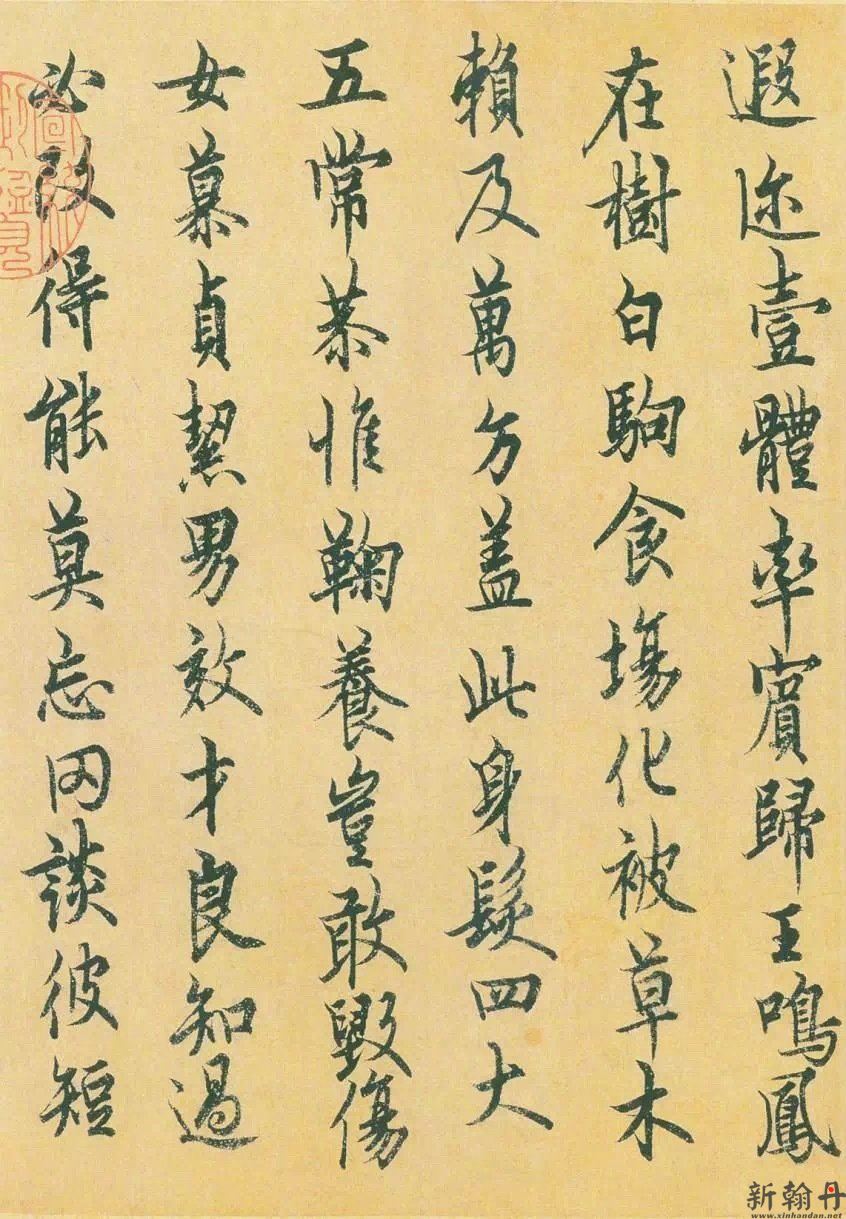 遐迩壹體率賓歸王鳴鳳
在樹白駒食場化被草木
賴及萬方盖此身髮四大
五常恭惟鞠養豈敢毀傷
女慕貞絜男效才良知過
必改得能莫忘罔談彼短
新翰丹
www.xinhandan.net